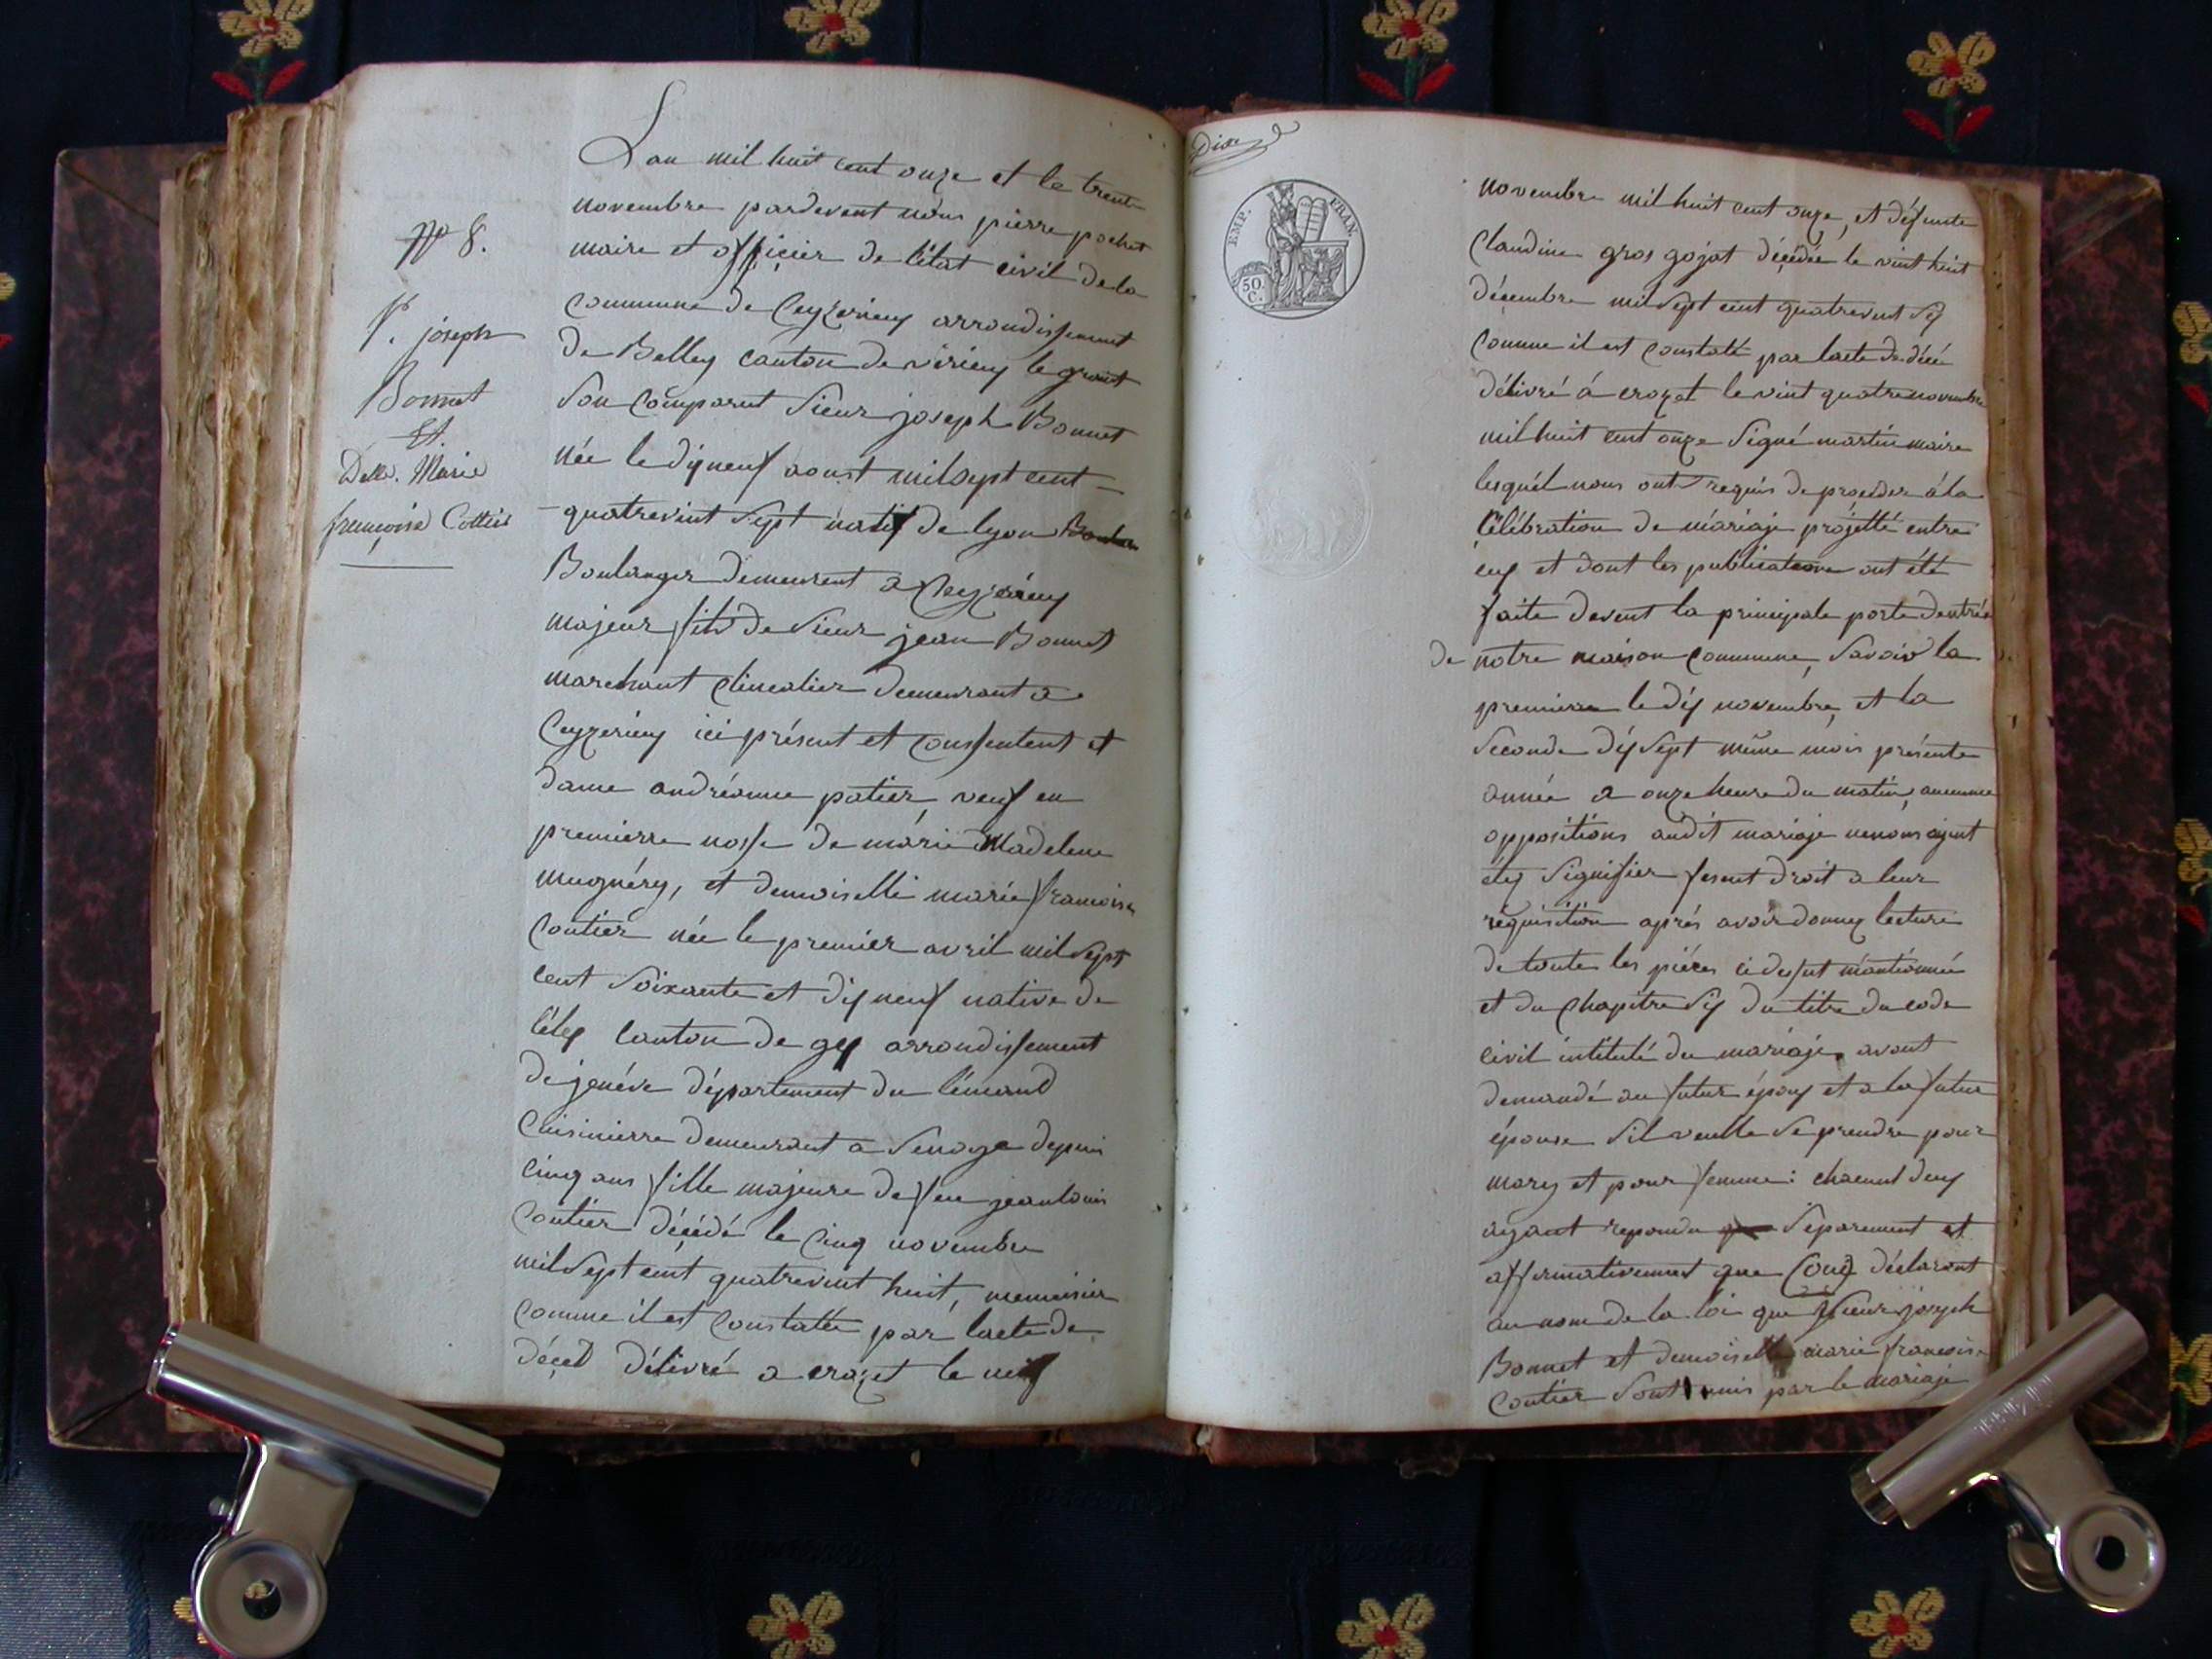 N° 8.
S. joseph
Bonnet
Et.
Delle. Marie
françoise Cottier
Lan mil huit cent onze et le trente
novembre pardevent nous pierre pochet
maire et officier de létat civil de la
commune de Ceyzerieu arrondissement
de Belley canton de virieu le grant
Son comparut Sieur joseph Bonnet
née le dixneuf aoust mil sept cent
quatrevint sept natif de lyon
Boulanger demeurent a Ceyzerieu
majeur fils de Sieur jean Bonnet
marchant clincalier demeurant a
Ceyzerieu ici présent et consentent et
dame andréanne patier, veuf en
premierre nosse de marie Madelene
mugnéry, et demoiselle marie francoise
Coutier née le premier avril mil sept
cent soixante et dix neuf native de
léley canton de gex arrondissement
de jenéve département du lémand
Cuisinierre demeurant a depuis
cinq ans fille majeure de feu jean louis
Coutier décédé le cinq novembre
mil sept cent quatrevint huit, menuisier
comme il est constatée par lacte de
déced délivré a crozet le
Dix
EMP. FRAN.
50 C.
novembre mil huit cent onze, et défunte
Claudine gros gojat décédée le vint huit
décembre mil sept cent quatrevint six
comme il est constaté par lacte de décé
délivré á crozet le vint quatre novembre
mil huit cent onze Signé martin maire
lesquél nous ont requis de proceder á la
célébration de mariaje projetté entre
eux et dont les publications ont été
faite devent la principale porte dentrée
de notre maison commune, Savoir la
premierre le dix novembre, et la
Seconde dix sept même mois présente
année a onze heure du matin, aucunne
oppositions audit mariaje ne nous ayent
étez signifier fesent droit a leur
réquisition aprés avoir donnez lecture
de toute les piéces ci dessut mantionnée
et du chapitre six du titre du code
civil intitulé du mariaje, avont
demandé au futur époux et a la futur
épouse Sil veulle se prendre pour
mary et pour femme: chacunt deux
ayant repondu séparement et
affirmativement que (oui) déclaront
au nom de la loi que Sieur joseph
Bonnet et demoiselle marie francoise
Coutier sont unis par le mariaje